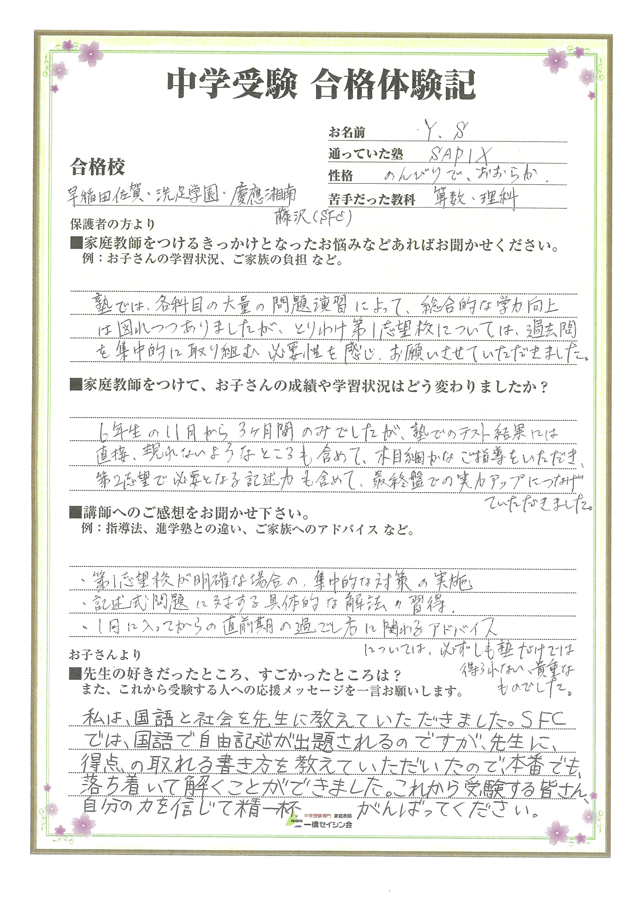 中学受験 合格体験記
お名前 Y.S
通っていた塾 SAPIX
性格 のんびりで、おおらか.
苦手だった教科 算数・理科
合格校
早稲田佐賀・洗足学園・慶應湘南
藤沢(SFC)
保護者の方より
■家庭教師をつけるきっかけとなったお悩みなどあればお聞かせください。
例：お子さんの学習状況、ご家族の負担 など。
塾では、各科目の大量の問題演習によって、総合的な学力向上
は図れつつありましたが、とりわけ第1志望校については、過去問
を集中的に取り組む必要性を感じ、お願いさせていただきました。
■家庭教師をつけて、お子さんの成績や学習状況はどう変わりましたか？
6年生の11月から3ヶ月間のみでしたが、塾でのテスト結果には
直接、現れないようなところも含めて、木目細かなご指導をいただき、
第2志望で必要となる記述力も含めて、最終盤での実力アップにつなげ
ていただきました。
■講師へのご感想をお聞かせ下さい。
例：指導法、進学塾との違い、ご家族へのアドバイス など。
・第1志望校が明確な場合の、集中的な対策の実施
・記述式問題に対する具体的な解法の習得.
・1月に入ってからの直前期の過ごし方に関わるアドバイス
については、必ずしも塾だけでは
得られない、貴重な
ものでした。
お子さんより
■先生の好きだったところ、すごかったところは？
また、これから受験する人への応援メッセージを一言お願いします。
私は、国語と社会を先生に教えていただきました。SFC
では、国語で自由記述が出題されるのですが、先生に、
得点の取れる書き方を教えていただいたので、本番でも、
落ち着いて解くことができました。これから受験する皆さん、
自分の力を信じて精一杯 がんばってください。
中学受験専門 家庭教師
一橋セイシン会